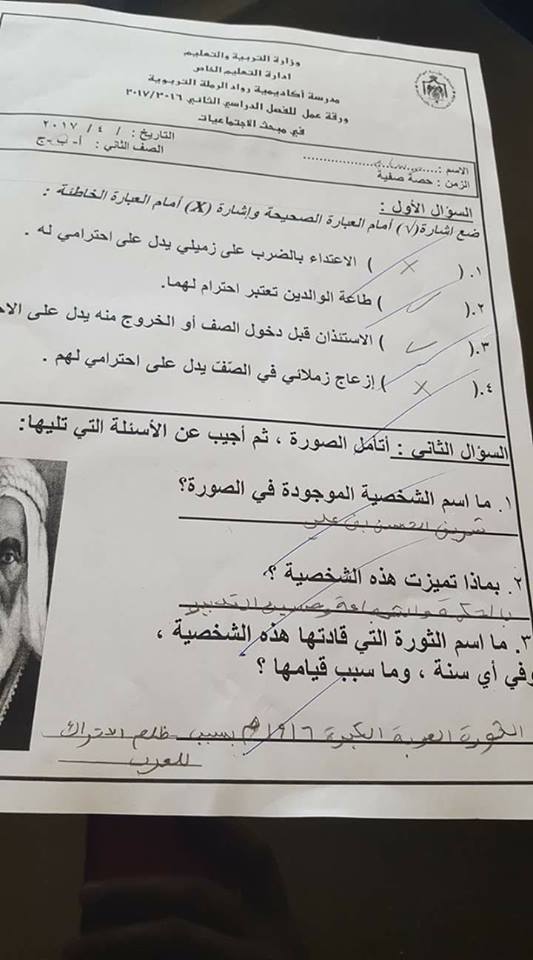 وزارة التربية والتعليم
ادارة التعليم الخاص
مدرسة أكاديمية رواد الرملة التربوية
ورقة عمل للفصل الدراسي الثاني ٢٠١٧/٢٠١٦
في مبحث الاجتماعيات
الاسم : التاريخ : / ٤ / ٢٠١٧
الزمن : حصة صفية الصف الثاني : أ - ب - ج
السؤال الأول :
ضع إشارة (√) أمام العبارة الصحيحة وإشارة (X) أمام العبارة الخاطئة :
١. ( X ) الاعتداء بالضرب على زميلي يدل على احترامي له .
٢. ( ✓ ) طاعة الوالدين تعتبر احترام لهما.
٣. ( ✓ ) الاستئذان قبل دخول الصف أو الخروج منه يدل على
٤. ( X ) إزعاج زملائي في الصّفّ يدل على احترامي لهم .
السؤال الثاني : أتأمل الصورة ، ثم أجيب عن الأسئلة التي تليها:
١. ما اسم الشخصية الموجودة في الصورة؟
شريف الحسين بن علي
٢. بماذا تميزت هذه الشخصية ؟
بالحكمة والشجاعة وحسن التدبير
٣. ما اسم الثورة التي قادتها هذه الشخصية ،
وفي أي سنة ، وما سبب قيامها ؟
الثورة العربية الكبرة ١٩١٦م بسبب ظلم الاتراك
للعرب